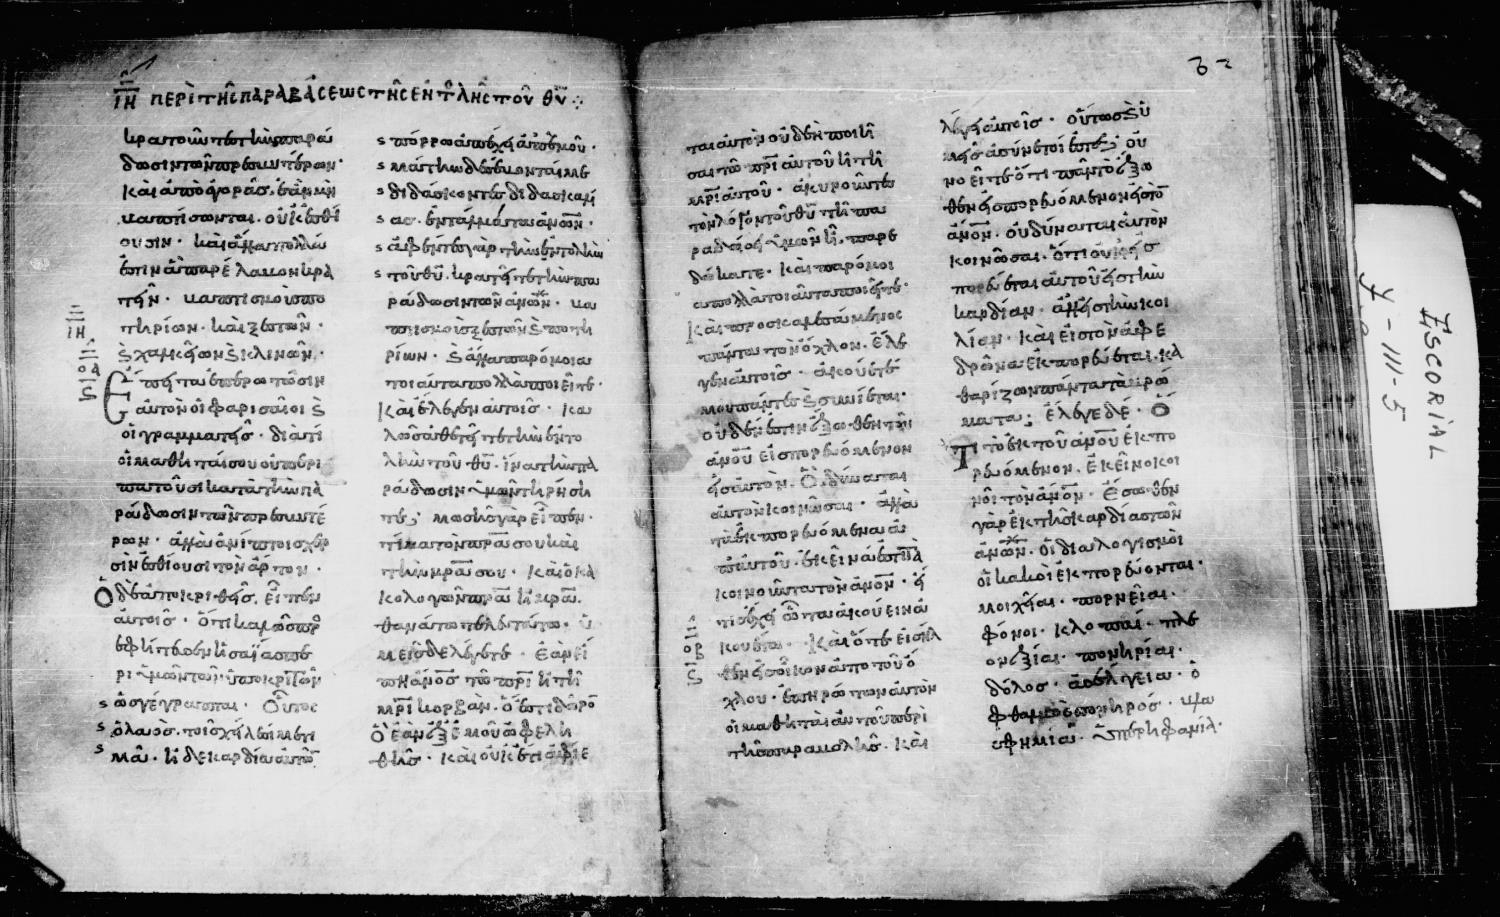 ΙΗ ΠΕΡΙ ΤΗΣ ΠΑΡΑΒΑΣΕΩΣ ΤΗΣ ΕΝΤΟΛΗΣ ΤΟΥ ΘΥ
κρατοῦντες τὴν παρά
δωσιν τῶν πρεσβυτέρων·
καὶ ἀπὸ ἀγορᾶς, ἐὰν μὴ
βαπτίσωνται· οὐκ ἐσθί
ουσιν· καὶ ἄλλα πολλά
ἐστιν ἃ παρέλαβον κρα
τεῖν· βαπτισμοὺς πο
τηρίων· καὶ ξεστῶν·
ϗ χαλκείων ϗ κλινῶν·
ΙΗ
ΟΑ
Ϛ
Ἔπειτα ἐπερωτῶσιν
αὐτὸν οἱ φαρισαῖοι ϗ
οἱ γραμματεῖς· διατί
οἱ μαθηταί σου οὐ περι
πατοῦσι κατὰ τὴν πα
ράδωσιν τῶν πρεσβυτέ
ρων· ἀλλὰ ἀνίπτοις χερ
σὶν ἐσθίουσι τὸν ἄρτον·
Ὁ δὲ ἀποκριθεὶς, εἶπεν
αὐτοῖς· ὅτι καλῶς προ
εφήτευσεν ἡσαΐας πε
ρὶ ὑμῶν τῶν ὑποκριτῶν
ὡς γέγραπται· Οὗτος
ὁ λαὸς τοῖς χείλεσί με τι
μᾶ· ἡ δὲ καρδία αὐτῶν
πόρρω ἀπέχει ἀπ' ἐμοῦ·
μάτην δὲ σέβονταί με
διδάσκοντες διδασκαλί
ας· ἐντάλματα ἀνων·
ἀφέντες γὰρ τὴν ἐντολὴν
τοῦ θυ· κρατεῖτε τὴν πα
ράδωσιν τῶν ἀνων· βα
πτισμοὺς ξεστῶν ϗ ποτη
ρίων· ϗ ἄλλα παρόμοια
τοιαῦτα πολλὰ ποιεῖτε·
Καὶ ἔλεγεν αὐτοῖς· κα
λῶς ἀθετεῖτε τὴν ἐντο
λὴν τοῦ θυ· ἵνα τὴν πα
ράδωσιν ὑμῶν τηρήση
τε; μωσῆς γὰρ εἶπεν·
τίμα τὸν πρα σου καὶ
τὴν μρα σου· καὶ ὁ κα
κολογῶν πρα ἢ μρα·
θανάτω τελευτάτω· ὑ
μεῖς δὲ λέγετε· ἐὰν εἴ
πη ἄνος τῶ πρι ἢ τῆ
μρι κορβᾶν· ὅ ἐστι δῶρο
ὃ ἐὰν ἐξ ἐμοῦ ὠφελη
θῆς· καὶ οὐκέτι ἀφίε
ται αὐτὸν οὐδὲν ποιῆ
σαι τῶ πρι αὐτοῦ ἢ τῆ
μρι αὐτοῦ· ἀκυροῦντες
τὸν λόγον τοῦ θυ τῆ πα
ραδόσει ὑμῶν ἧ παρε
δώκατε· καὶ παρόμοι
α πολλὰ τοιαῦτα ποιεῖτε·
Καὶ προσκαλεσάμενος
πάντα τὸν ὄχλον· ἔλε
γεν αὐτοῖς· ἀκούετέ
μου πάντες ϗ συνίεται·
οὐδέν ἐστιν ἔξωθεν τοῦ
ἀνου εἰσπορευόμενον
εἰς αὐτὸν· ὃ δύναται
αὐτὸν κοινῶσαι· ἀλλὰ
τὰ ἐκπορευόμενα ἀ
π' αὐτοῦ· ἐκεῖνά ἐστι τὰ
κοινοῦντα τὸν ἄνον· εἴ
τις ἔχει ὦτα ἀκούειν ἀ
κουέτω· Καὶ ὅτε εἰσῆλ
ΟΒ
Ϛ
θεν εἰς οἶκον ἀπὸ τοῦ ὄ
χλου· ἐπηρώτων αὐτὸν
οἱ μαθηταὶ αὐτοῦ περὶ
τῆς παραβολῆς· καὶ
λέγει αὐτοῖς· οὕτως ϗ ὑ
μεῖς ἀσύνετοί ἐστε; οὐ
νοεῖτε ὅτι πᾶν τὸ ἔξω
θεν εἰσπορευόμενον εἰς τὸν
ἄνον· οὐ δύναται αὐτὸν
κοινῶσαι· ὅτι οὐκ εἰσ
πορεύεται αὐτοῦ εἰς τὴν
καρδίαν· ἀλλ' εἰς τὴν κοι
λίαν· καὶ εἰς τὸν ἀφε
δρῶνα ἐκπορεύεται· κα
θαρίζων πάντα τὰ βρώ
ματα; ἔλεγε δέ· Ὅ
τι τὸ ἐκ τοῦ ἀνου ἐκπο
ρευόμενον· ἐκεῖνο κοι
νοῖ τὸν ἄνον· ἔσωθεν
γὰρ ἐκ τῆς καρδίας τῶν
ἀνων· οἱ διαλογισμοὶ
οἱ κακοὶ ἐκπορεύονται·
μοιχεῖαι· πορνεῖαι·
φόνοι· κλοπαί· πλε
ονεξίαι· πονηρίαι·
δόλος· ἀσέλγεια· ὀ
φθαλμὸς πονηρός· βλα
σφημία· ὑπερηφανία·
ESCORIAL
Y-III-5